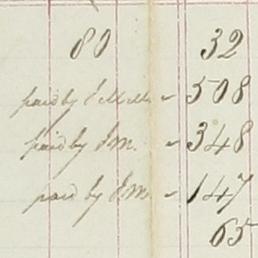 80 32
paid by - 508
paid by Jm. - 348
paid by Jm - 147
65